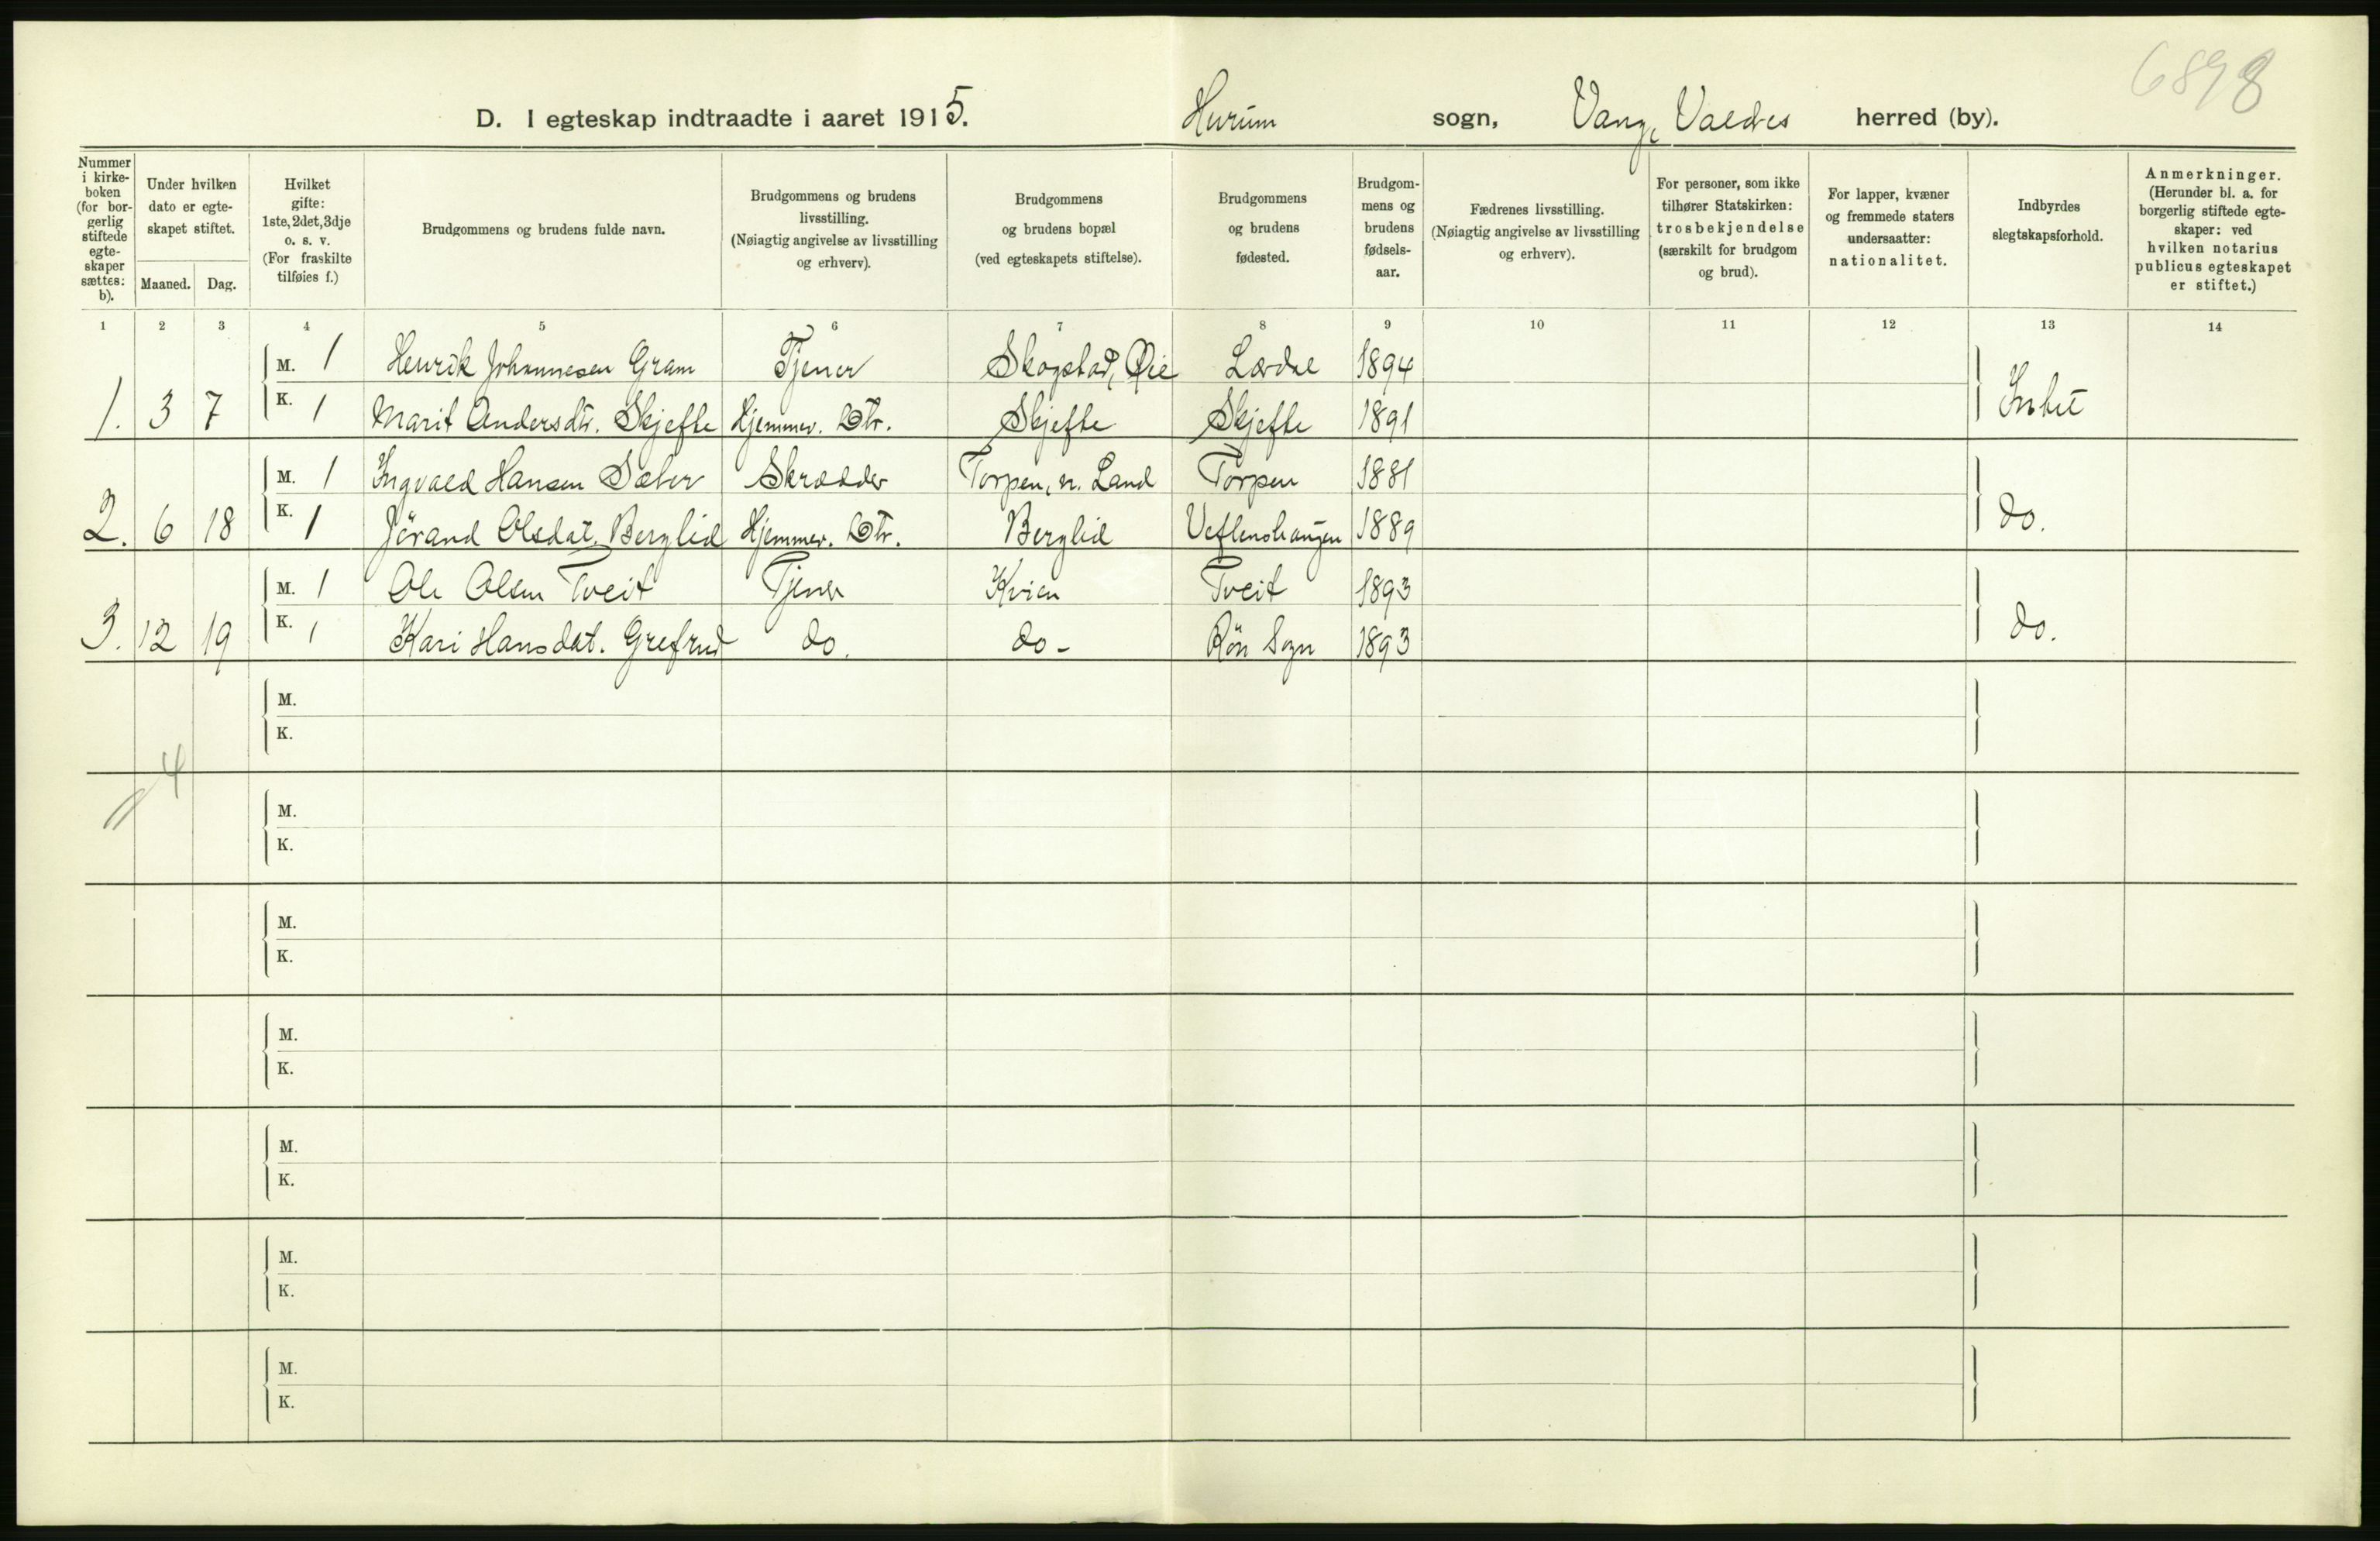 6898
D. I egteskap indtraadte i aaret 1915. Hurum sogn, Vang, Valdres herred (by).
Nummer i kirke-boken (for bor-gerlig stiftede egte-skaper sættes: b).
Under hvilken dato er egte-skapet stiftet.
Maaned. Dag.
Hvilket gifte: 1ste, 2det, 3dje o. s. v. (For fraskilte tilføies f.)
Brudgommens og brudens fulde navn.
Brudgommens og brudens livsstilling. (Nøiagtig angivelse av livsstilling og erhverv).
Brudgommens og brudens bopæl (ved egteskapets stiftelse).
Brudgommens og brudens fødested.
Brudgom-mens og brudens fødsels-aar.
Fædrenes livsstilling. (Nøiagtig angivelse av livsstilling og erhverv).
For personer, som ikke tilhører Statskirken: trosbekjendelse (særskilt for brudgom og brud).
For lapper, kvæner og fremmede staters undersaatter: nationalitet.
Indbyrdes slegtskapsforhold.
Anmerkninger. (Herunder bl. a. for borgerlig stiftede egte-skaper: ved hvilken notarius publicus egteskapet er stiftet.)
1 2 3 4 5 6 7 8 9 10 11 12 13 14
M. 1 Henrik Johannesen Gram Tjener Skogstad, Øie Lærdal 1894
1. 3 7 K. 1 Marit Andersdtr. Skjefte Hjemmev. Dtr. Skjefte Skjefte 1891 Intet
M. 1 Ingvald Hansen Sæter Skrædder Torpen, n. Land Torpen 1881
2. 6 18 K. 1 Jörand Olsdat. Berglid Hjemmev. Dtr. Berglid Veflenshaugen 1889 do.
M. 1 Ole Olsen Tveit Tjener Kvien Tveit 1893
3. 12 19 K. 1 Kari Hansdat. Grefrud do. do - Røn Sogn 1893 do.
M.
K.
4
M.
K.
M.
K.
M.
K.
M.
K.
M.
K.
M.
K.